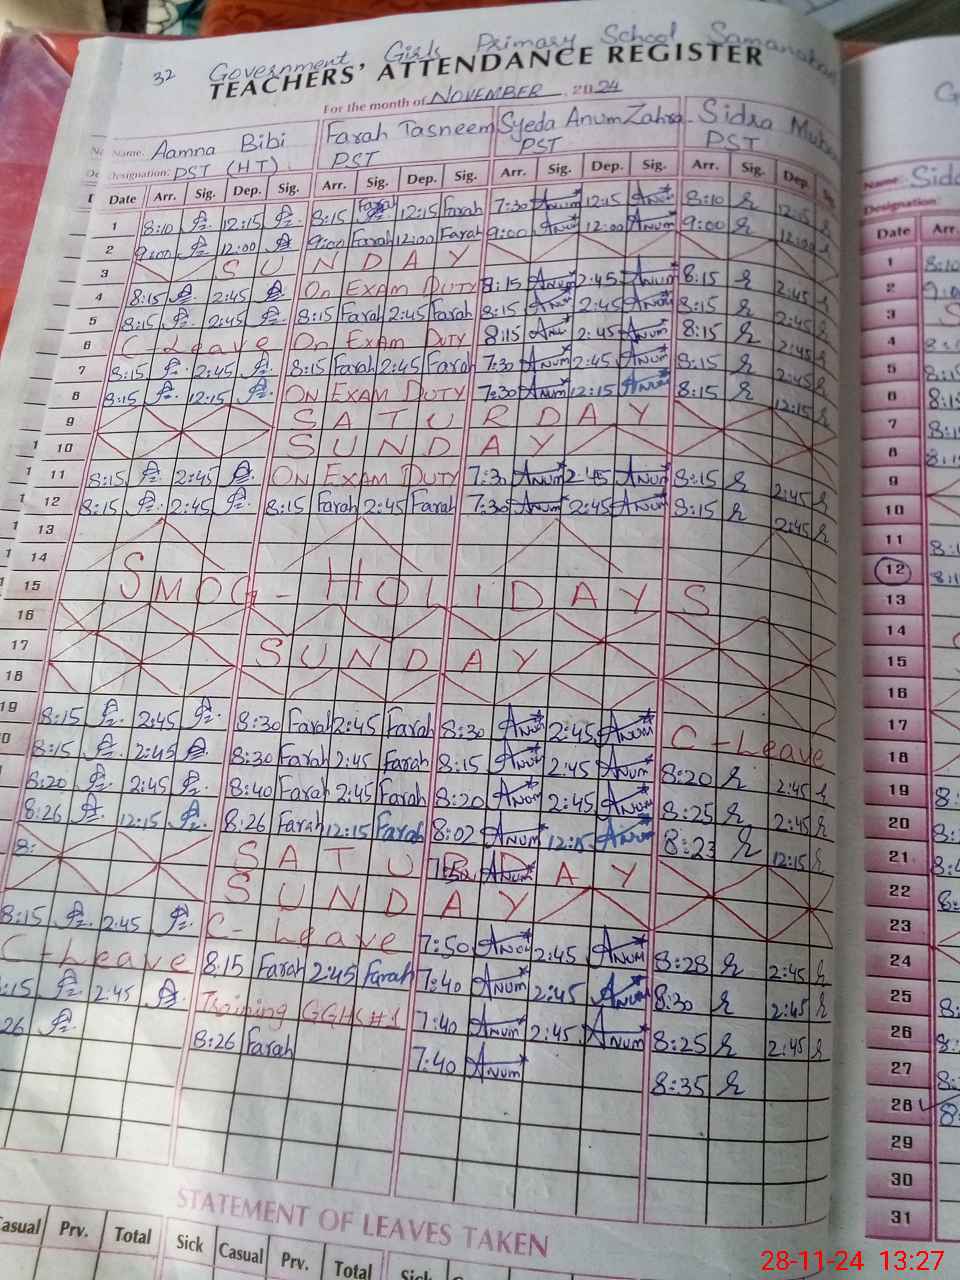 32 Government Girls Primary School
TEACHERS' ATTENDANCE REGISTER
For the month of NOVEMBER 2024
Name. Aamna Bibi Farah Tasneem Syeda Anum Zahra Sidra
Designation: PST (HT) PST PST PST
Date Arr. Sig. Dep. Sig. Arr. Sig. Dep. Sig. Arr. Sig. Dep. Sig. Arr. Sig. Dep.
1 8:10 12:15 8:15 Farah 12:15 Farah 7:30 Anum 12:15 Anum 8:10 12:15
2 9:00 12:00 9:00 Farah 12:00 Farah 9:00 Anum 12:00 Anum 9:00 12:00
3 SUNDAY
4 8:15 2:45 On EXAM DUTY 8:15 Anum 2:45 Anum 8:15 2:45
5 8:15 2:45 8:15 Farah 2:45 Farah 8:15 Anum 2:45 Anum 8:15 2:45
6 C Leave On EXAM DUTY 8:15 Anum 2:45 Anum 8:15 2:45
7 8:15 2:45 8:15 Farah 2:45 Farah 7:30 Anum 2:45 Anum 8:15 2:45
8 8:15 12:15 ON EXAM DUTY 7:30 Anum 12:15 Anum 8:15 12:15
9 SATURDAY
10 SUNDAY
11 8:15 2:45 ON EXAM DUTY 7:30 Anum 2:45 Anum 8:15 2:45
12 8:15 2:45 8:15 Farah 2:45 Farah 7:30 Anum 2:45 Anum 8:15 2:45
13
14
15 SMOG - HOLIDAYS
16
17 SUNDAY
18
19 8:15 2:45 8:30 Farah 2:45 Farah 8:30 Anum 2:45 Anum C-Leave
8:15 2:45 8:30 Farah 2:45 Farah 8:15 Anum 2:45 Anum 8:20 2:45
8:20 2:45 8:40 Farah 2:45 Farah 8:20 Anum 2:45 Anum 8:25 2:45
8:26 12:15 8:26 Farah 12:15 Farah 8:02 Anum 12:15 Anum 8:23 12:15
8: SATURDAY 7:50 Anum
SUNDAY
8:15 2:45 C- Leave 7:50 Anum 2:45 Anum 8:28 2:45
C-Leave 8:15 Farah 2:45 Farah 7:40 Anum 2:45 Anum 8:30 2:45
:15 2:45 Training GGHS #1 7:40 Anum 2:45 Anum 8:25 2:45
26 8:26 Farah 7:40 Anum 8:35
STATEMENT OF LEAVES TAKEN
Casual Prv. Total Sick Casual Prv. Total Sick
Name:
Designation:
Date Arr.
1 8:10
2
3
4
5
6
7
8
9
10
11
12
13
14
15
16
17
18
19
20
21
22
23
24
25
26
27
28
29
30
31
28-11-24 13:27